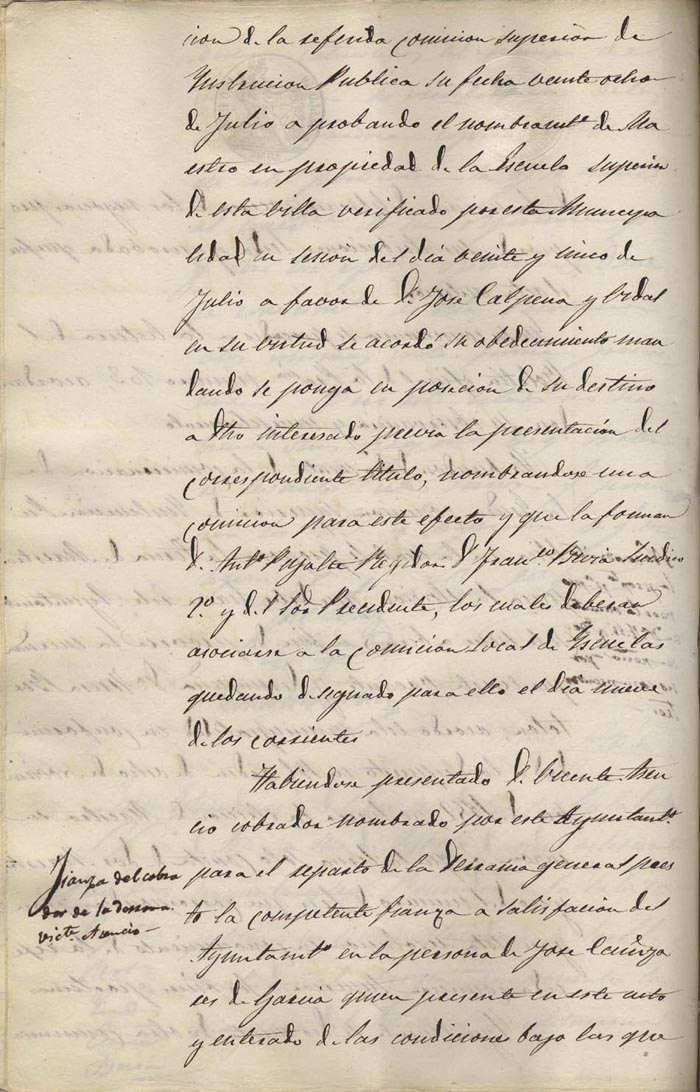 cion de la referida comision superior de
Ynstrucion Publica su fecha veinte ocho
de Julio a probando el nombramto. de Ma
estro en propiedad de la Escuela superior
de esta villa verificado por esta Municipa
lidad en sesión del día veinte y cinco de
Julio a favor de D. José Calpena y Vidal
en su virtud se acordó su obedecimiento man
dando se ponga en posecion de su destino
a dho interesado previa la presentación del
correspondiente titulo, nombrandose una
comicion para este efecto y que la forman
D. Anto. Pujalte Regidor D. Franco. Sindico
2o. y del Sor. Precidente, los cuales deberan
asociarse a la comición Local de Escuelas
quedando designado para ello el dia nueve
de los corrientes
Habiendose presentado D. Vicente Asen
cio cobrador nombrado por este Ayuntamto.
Fianza del cobra
dor de la derrama
Victe. Asencio
para el reparto de la Derrama general pres
to la competente fianza a satisfacion del
Ayuntamto. en la persona de Jose
de Garcia quien presente en este acto
y enterado de las condiciones bajo las que